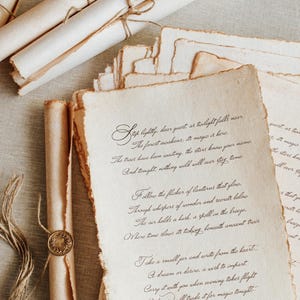 Step lightly, dear guest, as twilight falls near,
The forest awakens, its magic is here.
The trees have been waiting, the stars know your name
And tonight, nothing wild will ever stay tame.
Follow the flicker of lanterns that glow,
Through whispers of wonder and secrets below.
The air holds a hush, a spell in the breeze,
More time slows its ticking, beneath ancient trees
Take a small jar and write from the heart,
A dream or desire, a wish to impart.
Carry it with you when evening takes flight